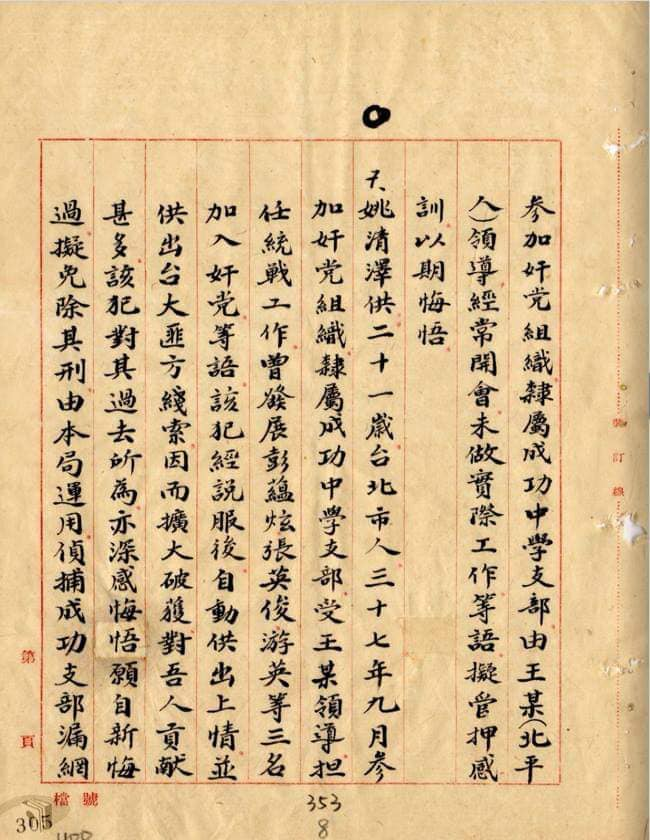 參加奸党組織隸屬成功中學支部由王某(北平
人)領導經常開會未做實際工作等語擬管押感
訓以期悔悟
姚清澤供二十一歲台北市人三十七年九月參
加奸党組織隸屬成功中學支部受王某領導担
任統戰工作曾發展彭蘊炫張英俊游英等三名
加入奸党等語該犯經說服後自動供出上情並
供出台大匪方綫索因而擴大破獲對吾人貢献
甚多該犯對其過去所為亦深感悔悟願自新悔
過擬免除其刑由本局運用偵捕成功支部漏網
裝訂線
第 頁
檔號
353
8
305